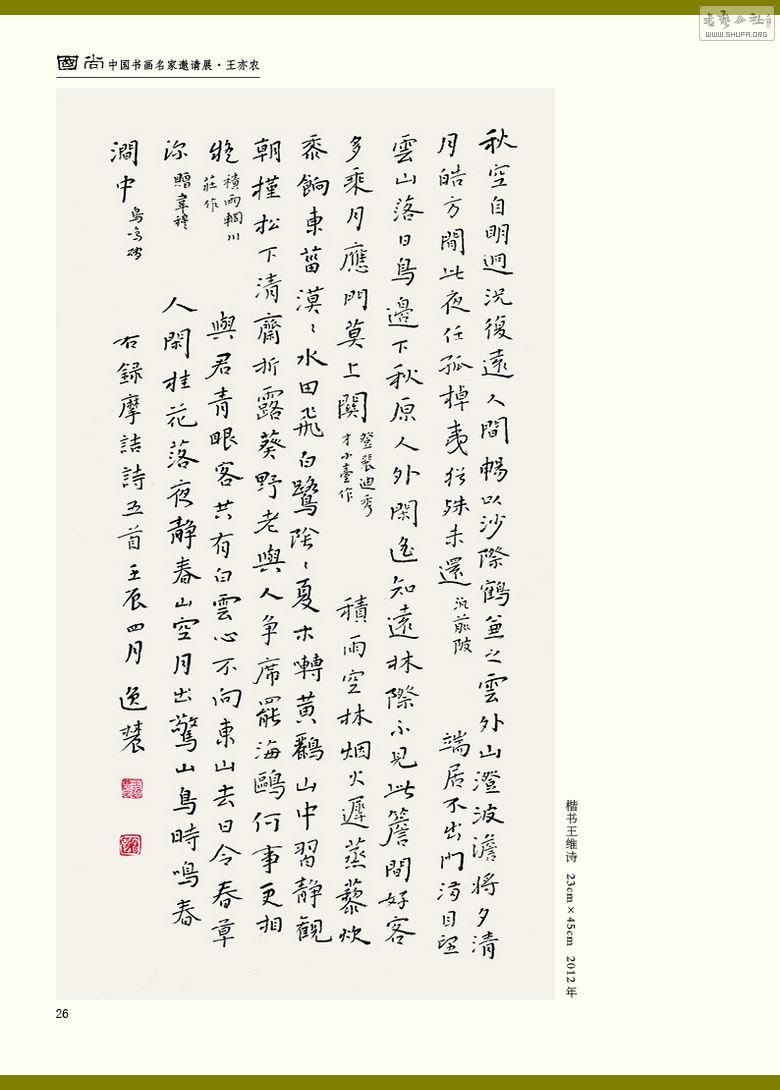 书艺公社
WWW.SHUFA.ORG
國尚 中国书画名家邀请展·王亦农
秋空自明迥況復遠人間暢以沙際鶴兼之雲外山澄波澹將夕清
月皓方閒此夜任孤棹夷猶殊未還 汎前陂 端居不出門滿目望
雲山落日鳥邊下秋原人外閑遙知遠林際不見此簷間好客
多乘月應門莫上關 登裴迪秀才小臺作 積雨空林烟火遲蒸藜炊
黍餉東菑漠〻水田飛白鷺陰〻夏木囀黃鸝山中習靜觀
朝槿松下清齋折露葵野老與人爭席罷海鷗何事更相
疑 積雨輞川莊作 與君青眼客共有白雲心不向東山去日令春草
深 贈韋穆 人閑桂花落夜靜春山空月出驚山鳥時鳴春
澗中 鳥鳴磵 右録摩詰詩五首壬辰四月逸農
楷书王维诗 23cm×45cm 2012年
26